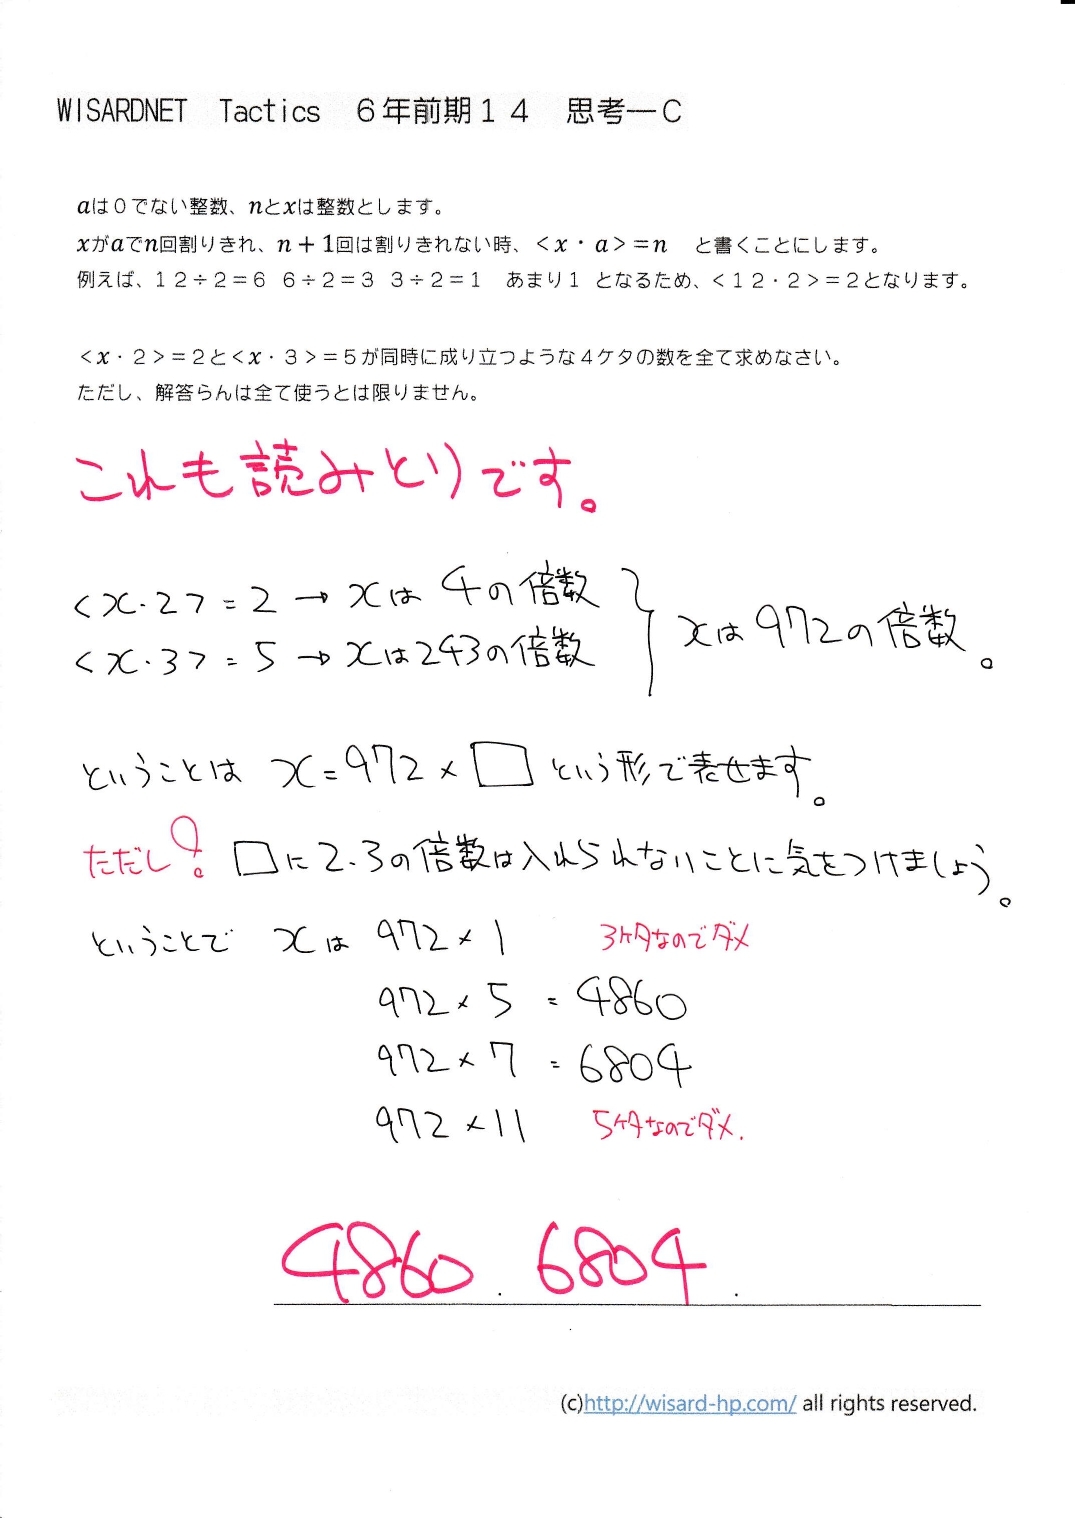 WISARDNET　Tactics　６年前期１４　思考―Ｃ
aは０でない整数、nとxは整数とします。
xがaでn回割りきれ、n＋1回は割りきれない時、＜x・a＞＝n　と書くことにします。
例えば、１２÷２＝６　６÷２＝３　３÷２＝１　あまり１　となるため、＜１２・２＞＝２となります。
＜x・２＞＝２と＜x・３＞＝５が同時に成り立つような４ケタの数を全て求めなさい。
ただし、解答らんは全て使うとは限りません。
これも読みとりです。
<x・2>=2→xは4の倍数
<x・3>=5→xは243の倍数
xは972の倍数。
ということは x=972×□という形で表せます。
ただし! □に2.3の倍数は入れられないことに気をつけましょう。
ということで xは 972×1 3ケタなのでダメ
972×5 = 4860
972×7 = 6804
972×11 5ケタなのでダメ.
4860 . 6804 .
(c)http://wisard-hp.com/ all rights reserved.